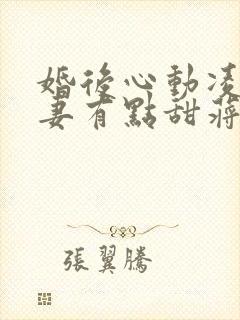 婚後心動凌
妻有點甜蔣
張翼騰